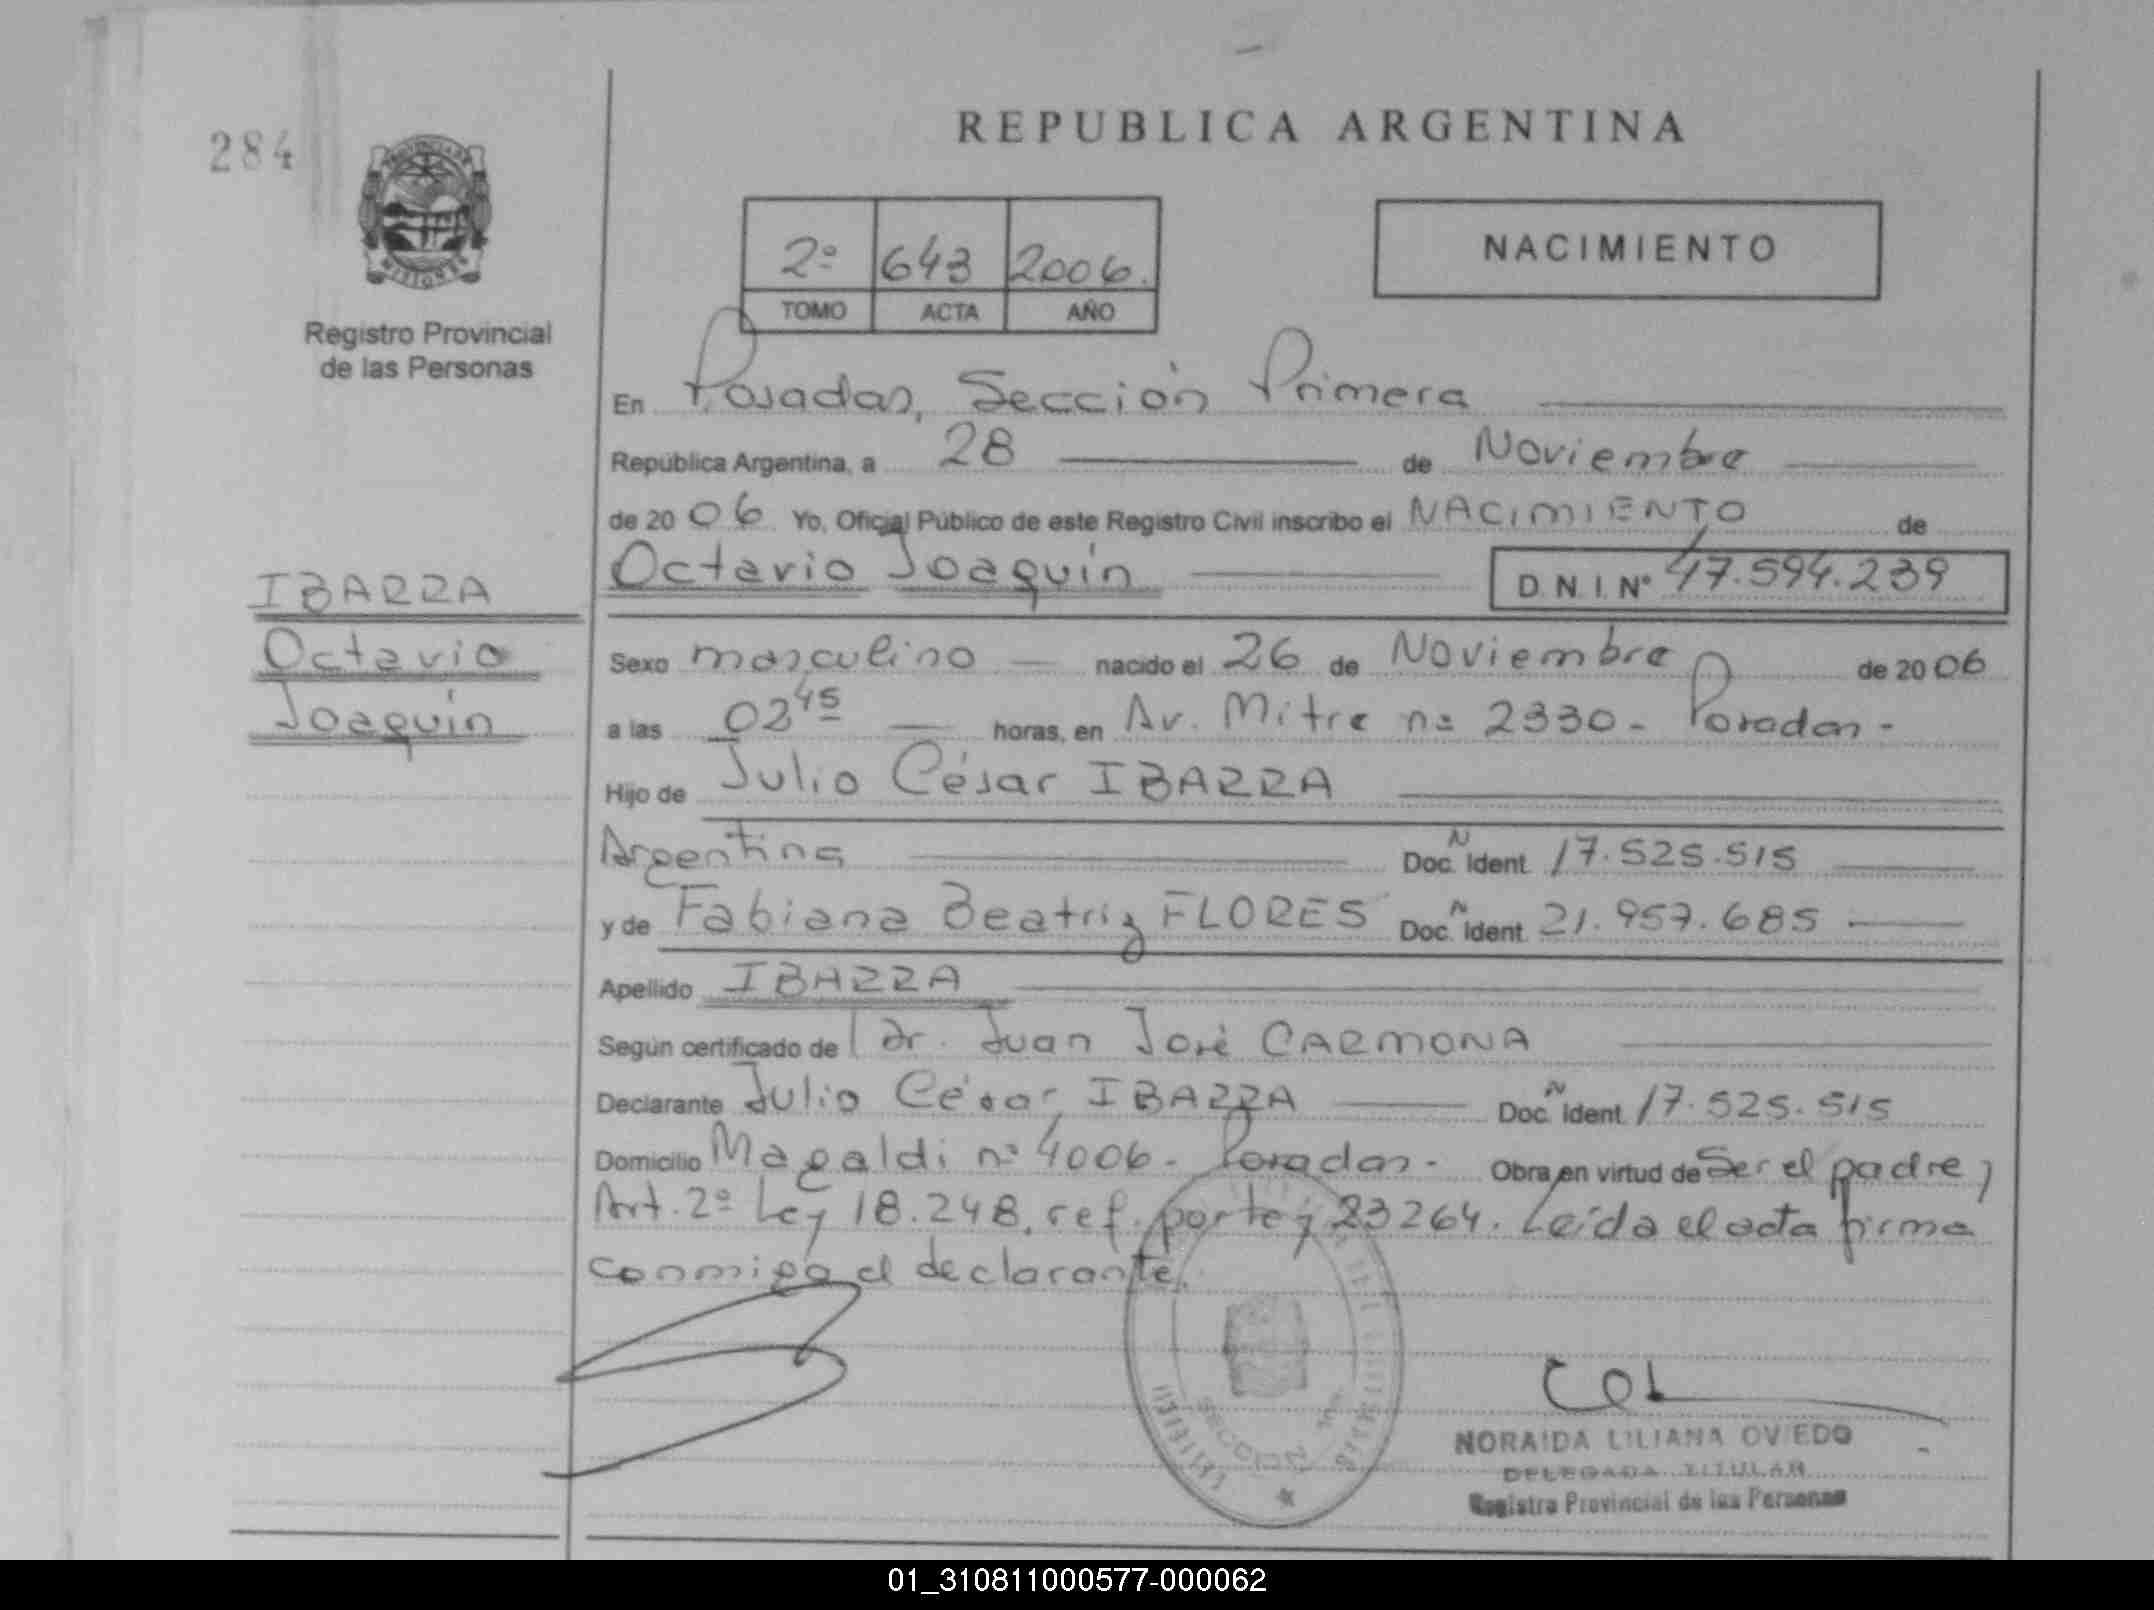 284
REPUBLICA ARGENTINA
PROVINCIA DE
MISIONES
Registro Provincial
de las Personas
2º 643 2006.
TOMO ACTA AÑO
NACIMIENTO
En Posadas, Sección Primera
República Argentina, a 28 de Noviembre
de 2006 Yo, Oficial Público de este Registro Civil inscribo el NACIMIENTO de
Octavio Joaquín D.N.I. Nº 47.594.239
IBARRA
Octavio
Joaquín
Sexo masculino nacido el 26 de Noviembre de 2006
a las 02 45 horas, en Av. Mitre nº 2330 - Posadas -
Hijo de Julio César IBARRA
Argentina Doc. Ident. 17.525.515
y de Fabiana Beatriz FLORES Doc. Ident. 21.957.685
Apellido IBARRA
Según certificado de Dr. Juan José CARMONA
Declarante Julio César IBARRA Doc. Ident. 17.525.515
Domicilio Magaldi nº 4006 - Posadas - Obra en virtud de Ser el padre,
Art. 2º Ley 18.248, ref. por Ley 23264. Leída el acta firma
conmigo el declarante.
NORAIDA LILIANA OVIEDO
DELEGADA TITULAR
Registro Provincial de las Personas
01_310811000577-000062